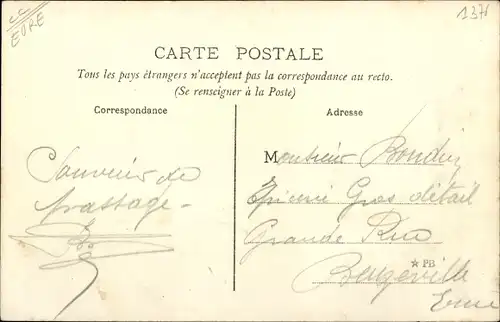 EURE
1378
CARTE POSTALE
Tous les pays étrangers n'acceptent pas la correspondance au recto.
(Se renseigner à la Poste)
Correspondance
Souvenir de
passage -
Adresse
Monsieur Boudin
Epicerie Gros détail
Grande Rue
★ PB
Beuzeville
Eure